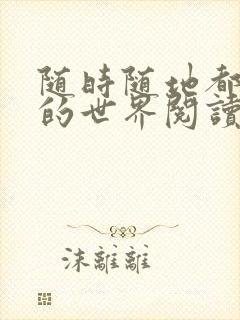 随時随地都
的世界閱讀
沫離離